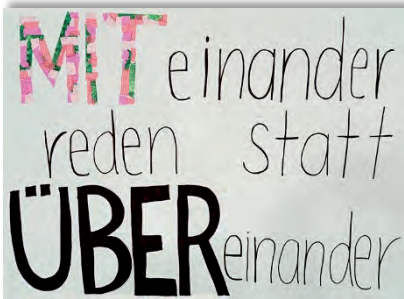 MITeinander
reden statt
ÜBEReinander